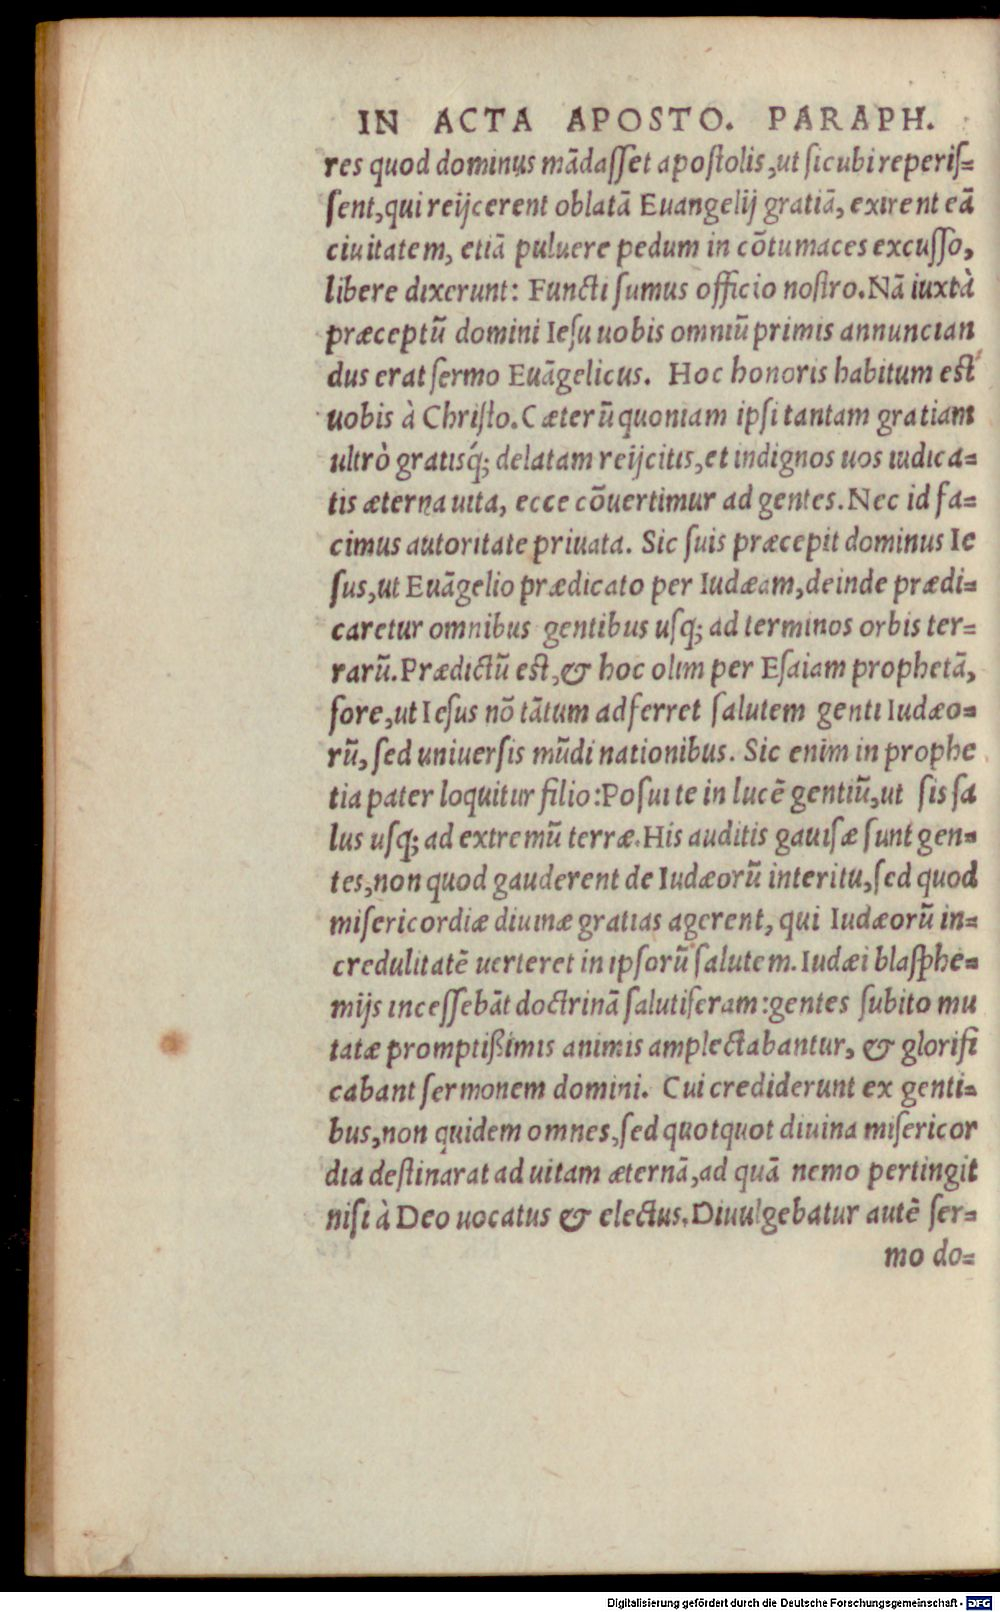 IN ACTA APOSTO. PARAPH.
res quod dominus mādaſſet apoſtolis, ut ſicubi reperiſ=
ſent, qui reijcerent oblatā Euangelij gratiā, exirent eā
ciuitatem, etiā puluere pedum in cōtumaces excuſſo,
libere dixerunt: Functi ſumus officio noſtro. Nā iuxtà
præceptū domini Ieſu uobis omniū primis annuncian
dus erat ſermo Euāgelicus. Hoc honoris habitum eſt
uobis à Chriſto. Cæterū quoniam ipſi tantam gratiam
ultrò gratisq́; delatam reijcitis, et indignos uos iudica=
tis æterna uita, ecce cōuertimur ad gentes. Nec id fa=
cimus autoritate priuata. Sic ſuis præcepit dominus Ie
ſus, ut Euāgelio prædicato per Iudæam, deinde prædi=
caretur omnibus gentibus uſq; ad terminos orbis ter=
rarū. Prædictū eſt, & hoc olim per Eſaiam prophetā,
fore, ut Ieſus nō tātum adferret ſalutem genti Iudæo=
rū, ſed uniuerſis mūdi nationibus. Sic enim in prophe
tia pater loquitur filio: Poſui te in lucē gentiū, ut ſis ſa
lus uſq; ad extremū terræ. His auditis gauiſæ ſunt gen=
tes, non quod gauderent de Iudæorū interitu, ſed quod
miſericordiæ diuinæ gratias agerent, qui Iudæorū in=
credulitatē uerteret in ipſorū ſalutem. Iudæi blaſphe=
mijs inceſſebāt doctrinā ſalutiferam: gentes ſubito mu
tatæ promptißimis animis amplectabantur, & glorifi
cabant ſermonem domini. Cui crediderunt ex genti=
bus, non quidem omnes, ſed quotquot diuina miſericor
dia deſtinarat ad uitam æternā, ad quā nemo pertingit
niſi à Deo uocatus & electus. Diuulgebatur autē ſer=
mo do=
Digitalisierung gefördert durch die Deutsche Forschungsgemeinschaft - DFG